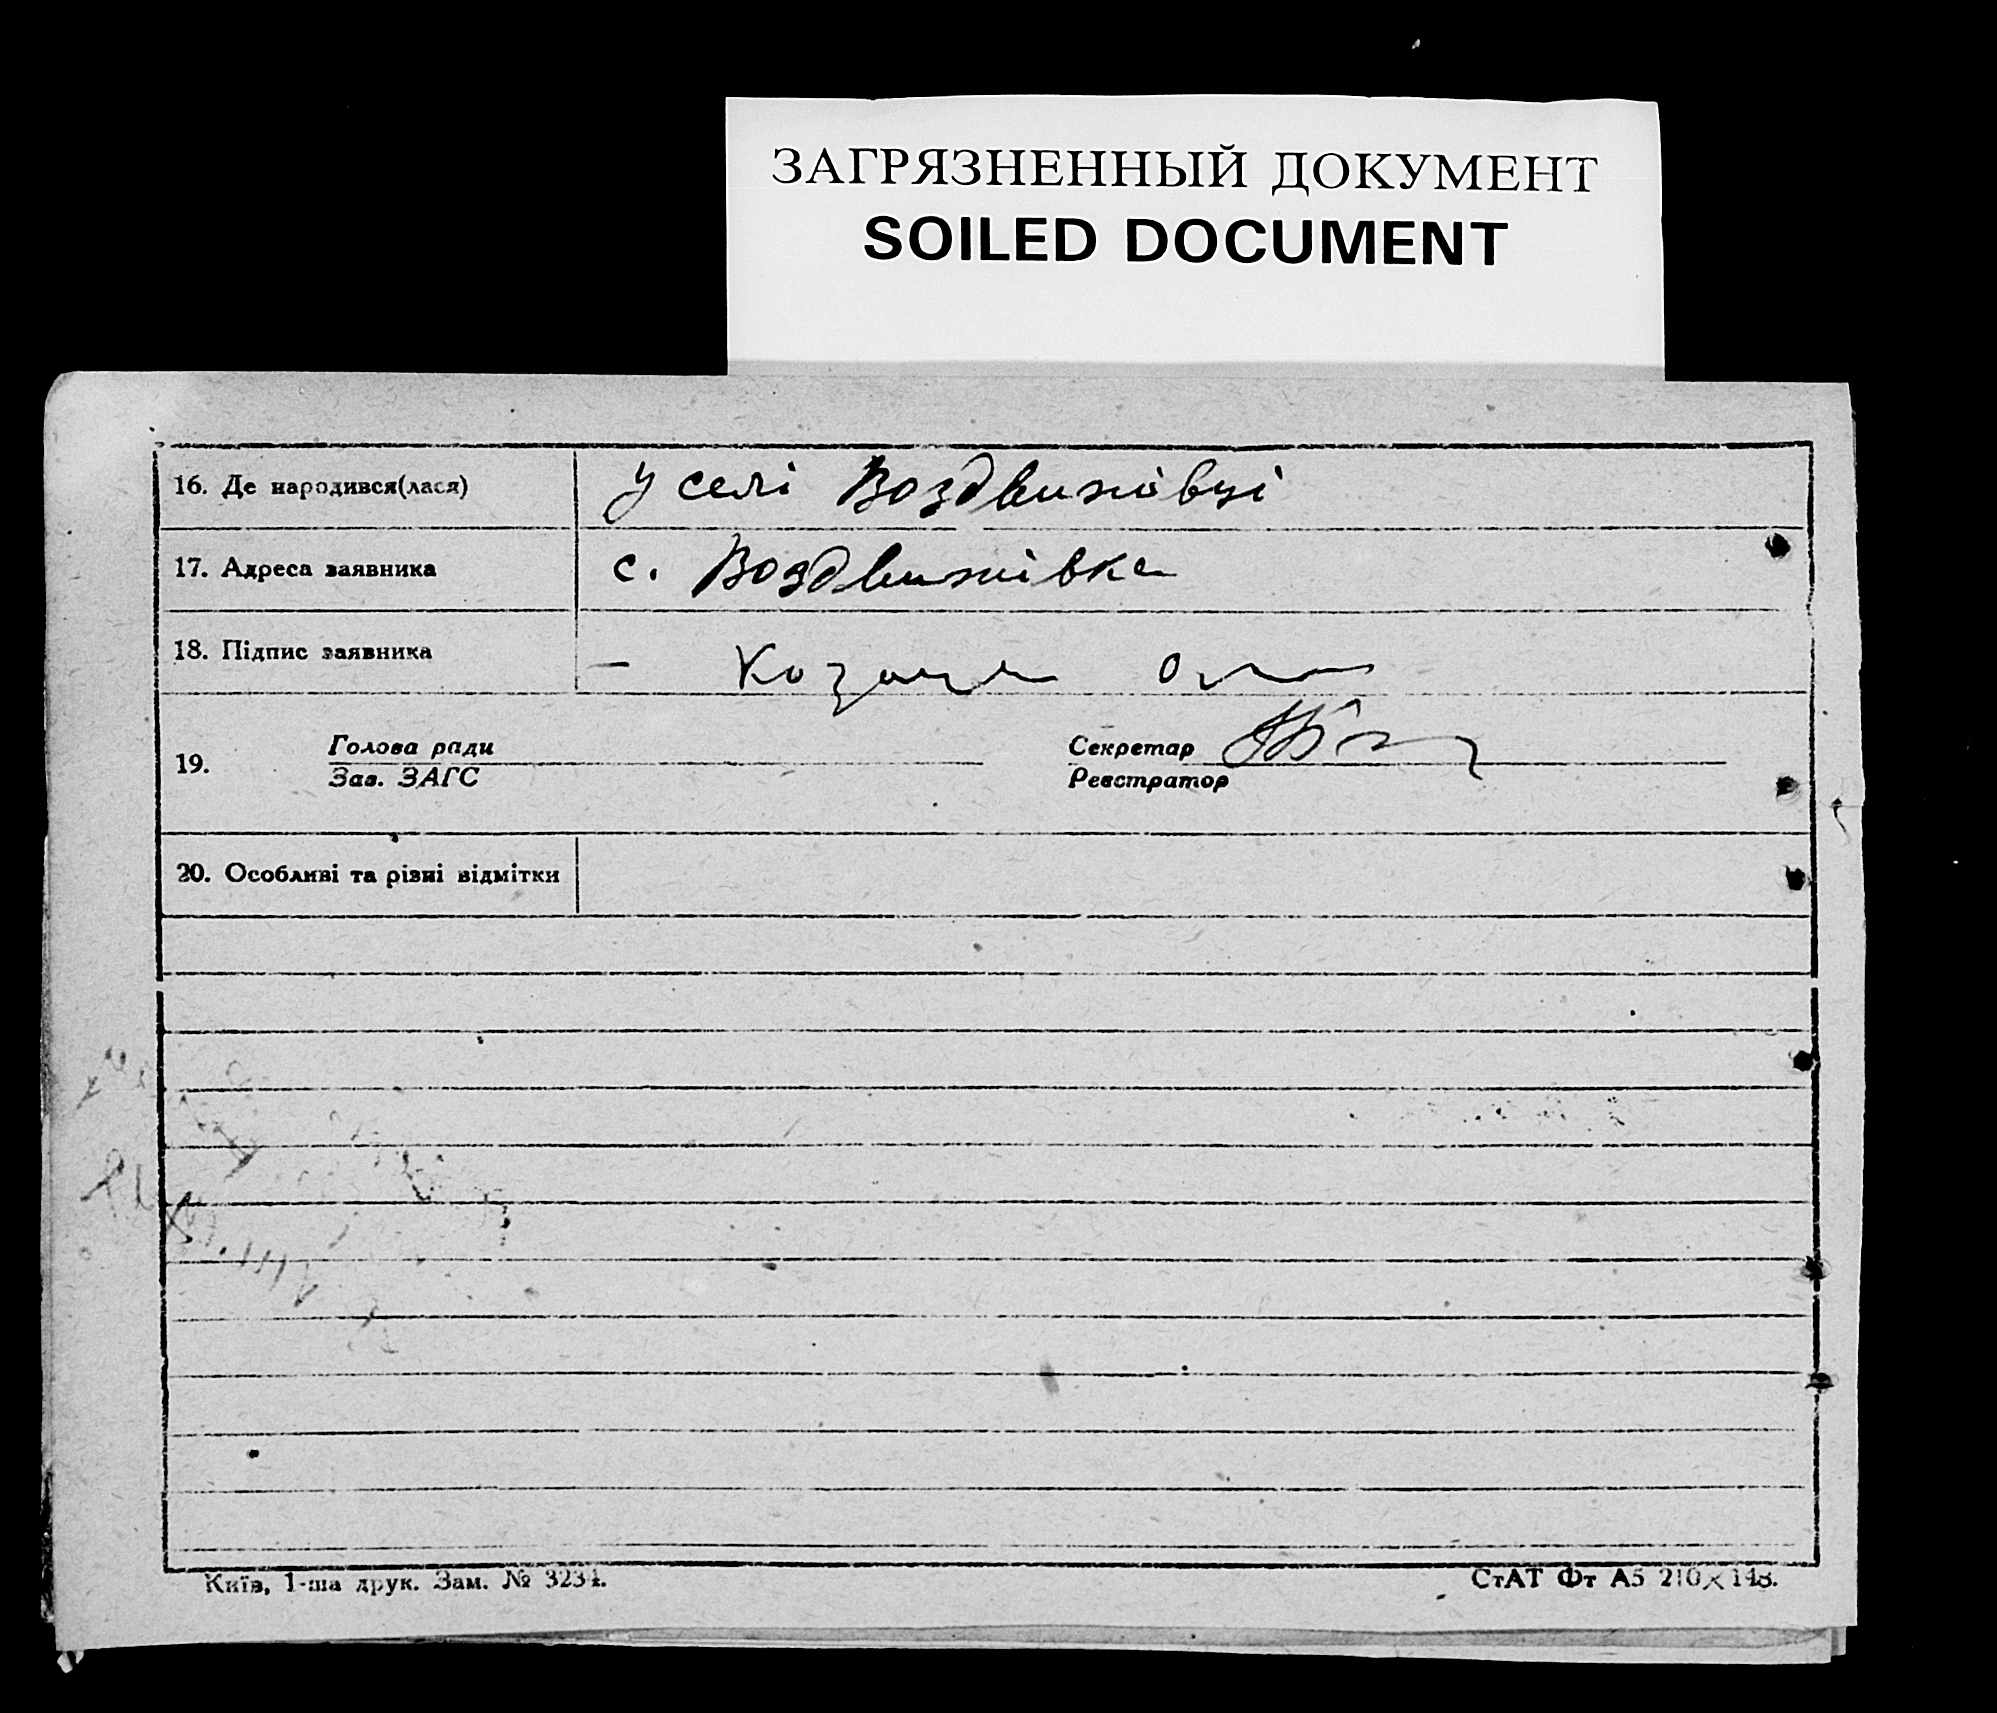 ЗАГРЯЗНЕННЫЙ ДОКУМЕНТ
SOILED DOCUMENT
16. Де народився(лася) у селі Воздвижівці
17. Адреса заявника с. Воздвижівка
18. Підпис заявника –
19. Голова ради Секретар
Зав. ЗАГС Реєстратор
20. Особливі та різні відмітки
Київ, 1-ша друк. Зам. № 3234. СтАТ Фт А5 210×148.